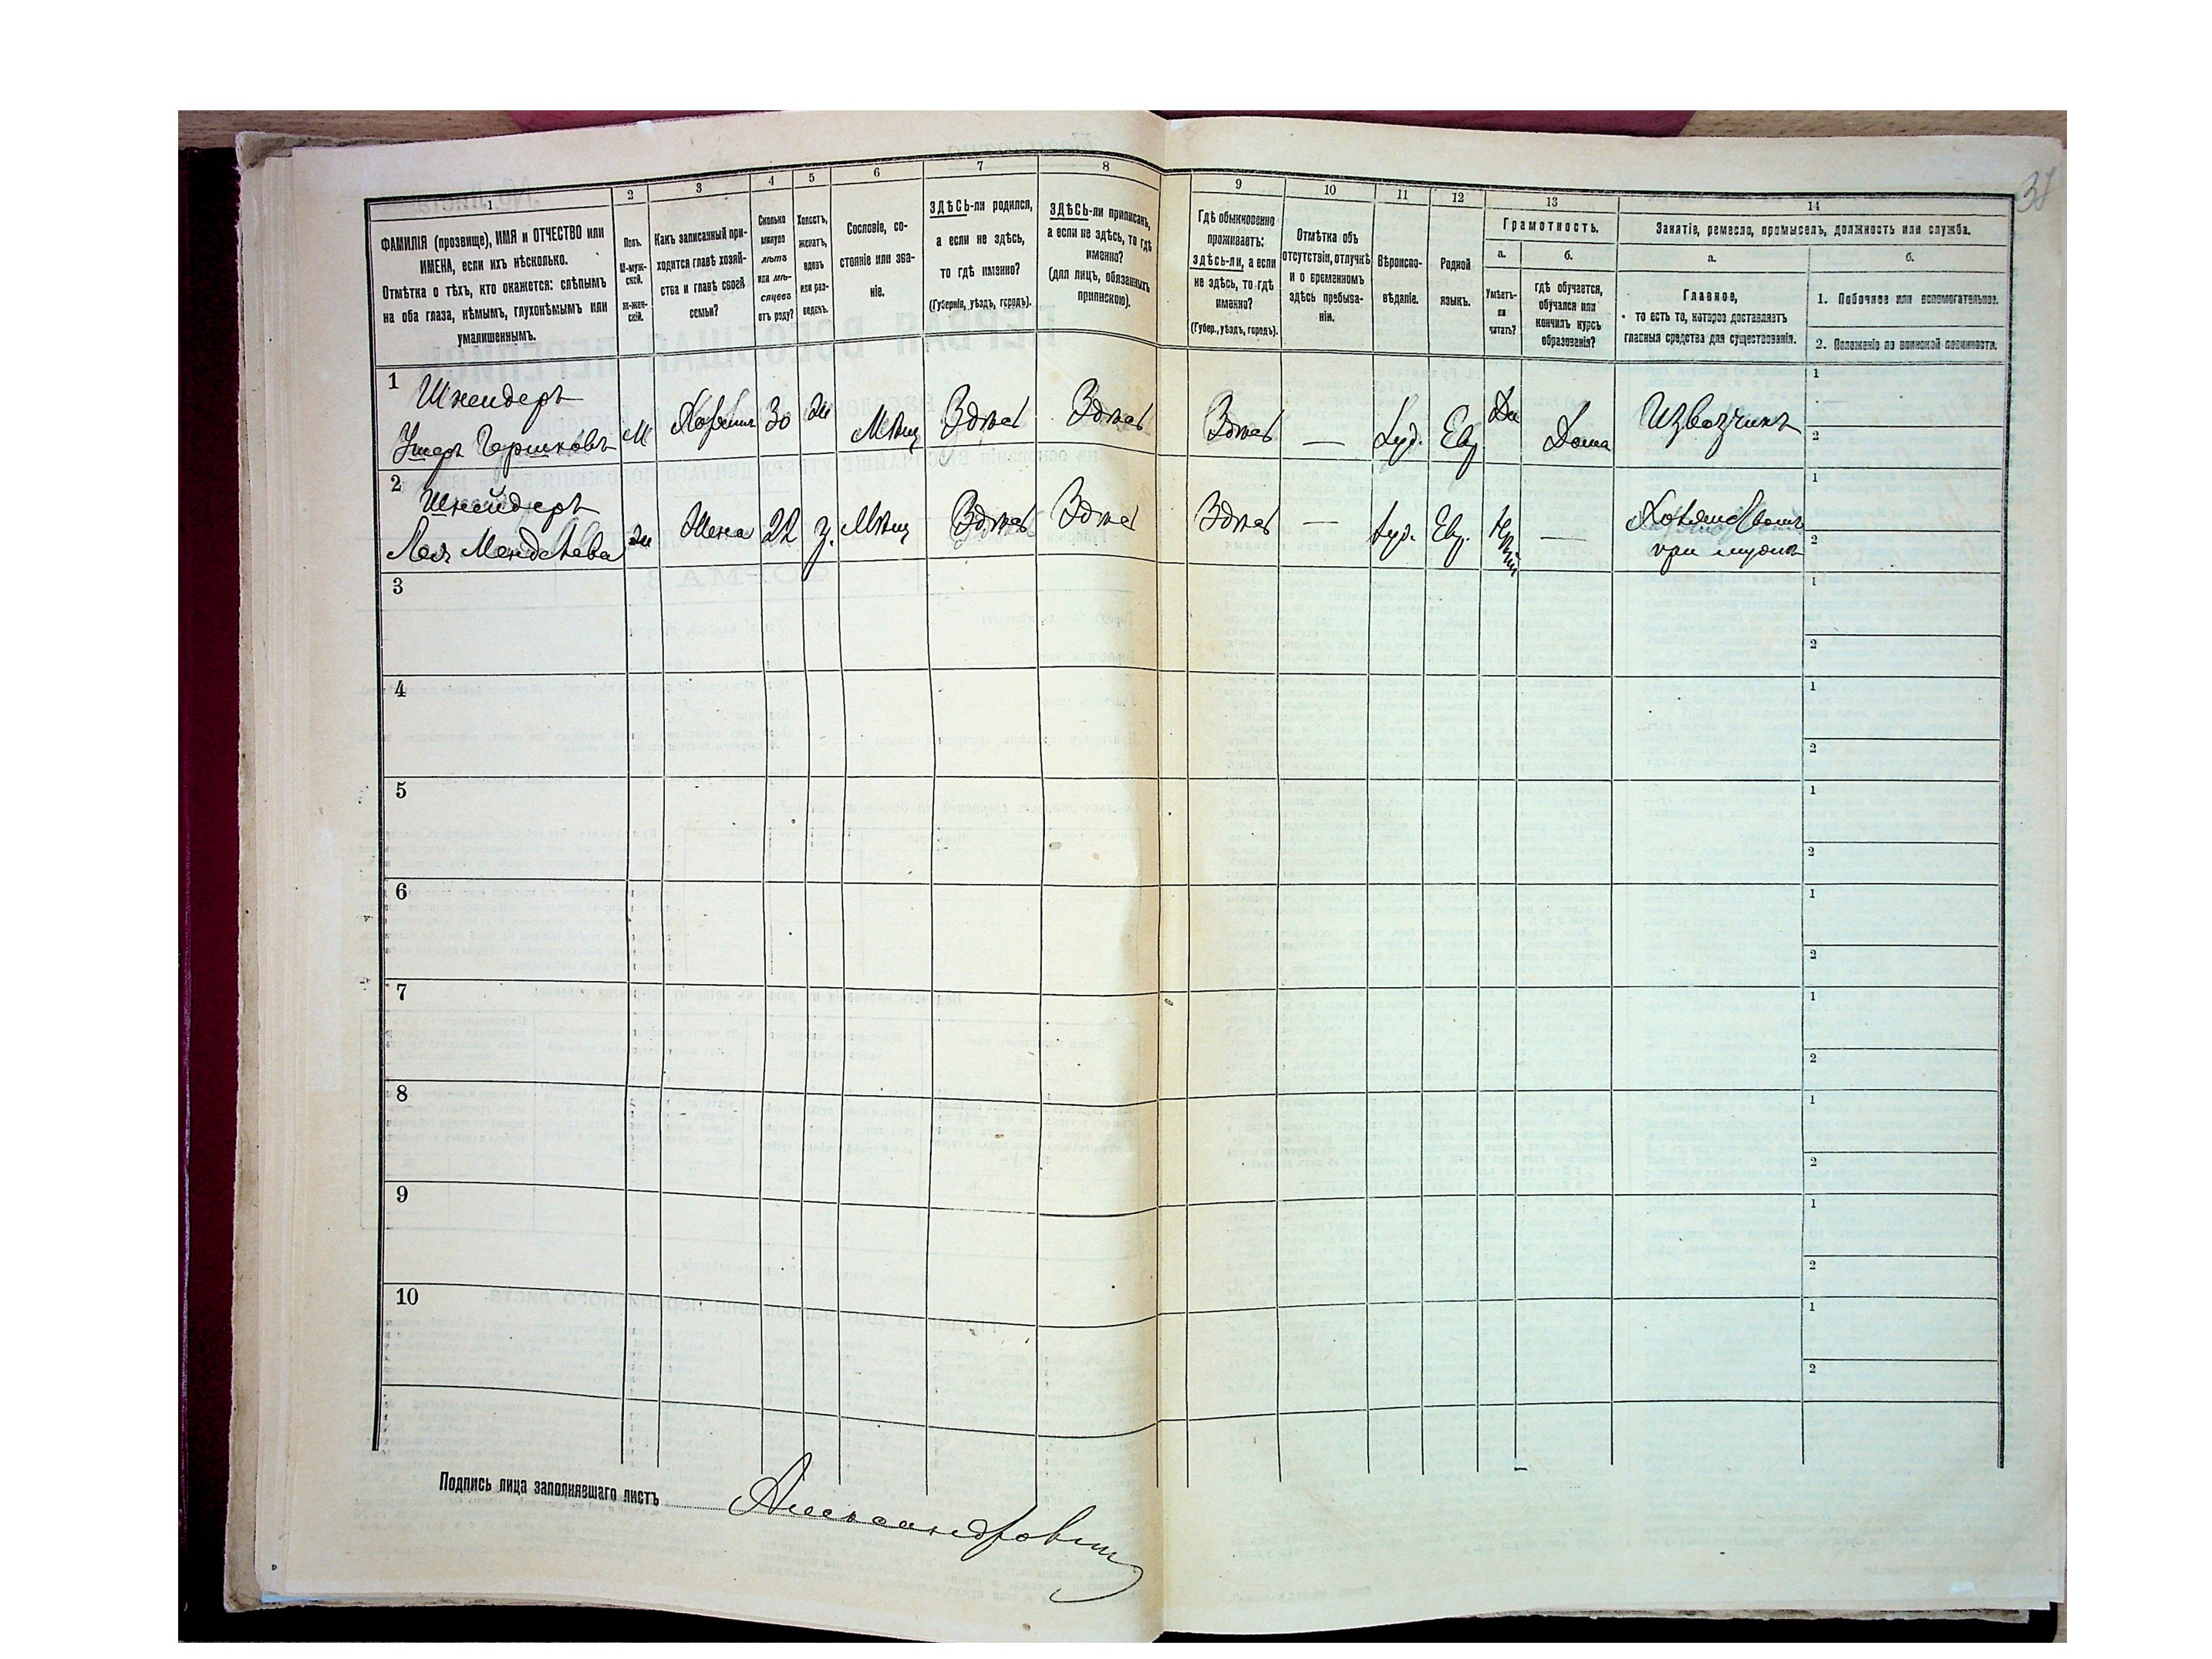 38
1
ФАМИЛІЯ (прозвище), ИМЯ и ОТЧЕСТВО или
ИМЕНА, если ихъ нѣсколько.
Отмѣтка о тѣхъ, кто окажется: слѣпымъ
на оба глаза, нѣмымъ, глухонѣмымъ или
умалишеннымъ.
2
Полъ.
М-муж-
ской.
ж-жен-
скій.
3
Какъ записанный при-
ходится главѣ хозяй-
ства и главѣ своей
семьи?
4
Сколько
минуло
лѣтъ
или мѣ-
сяцевъ
отъ роду?
5
Холостъ,
женатъ,
вдовъ
или раз-
веденъ.
6
Сословіе, со-
стояніе или зва-
ніе.
7
ЗДѢСЬ-ли родился,
а если не здѣсь,
то гдѣ именно?
(Губернія, уѣздъ, городъ).
8
ЗДѢСЬ-ли приписанъ,
а если не здѣсь, то гдѣ
именно?
(для лицъ, обязанныхъ
припискою).
9
Гдѣ обыкновенно
проживаетъ:
здѣсь-ли, а если
не здѣсь, то гдѣ
именно?
(Губер., уѣздъ, городъ).
10
Отмѣтка объ
отсутствіи, отлучкѣ
и о временномъ
здѣсь пребыва-
ніи.
11
Вѣроиспо-
вѣданіе.
12
Родной
языкъ.
13
Грамотность.
а.
Умѣетъ-
ли
читать?
б.
гдѣ обучается,
обучался или
кончилъ курсъ
образованія?
14
Занятіе, ремесло, промыселъ, должность или служба.
а.
Главное,
то есть то, которое доставляетъ
главныя средства для существованія.
б.
1. Побочное или вспомогательное.
2. Положеніе по воинской повинности.
1 Шнейдеръ
Гершковъ М Хозяинъ 30 ж Мѣщ Здѣсь Здѣсь Здѣсь — Іуд. Евр Да Дома Извозчикъ
1
2
2 Шнейдеръ
Лея Менделева ж Жена 22 з. Мѣщ Здѣсь Здѣсь Здѣсь — Іуд. Евр. —
при мужѣ
1
2
3
1
2
4
1
2
5
1
2
6
1
2
7
1
2
8
1
2
9
1
2
10
1
2
Подпись лица заполнявшаго листъ Александрович